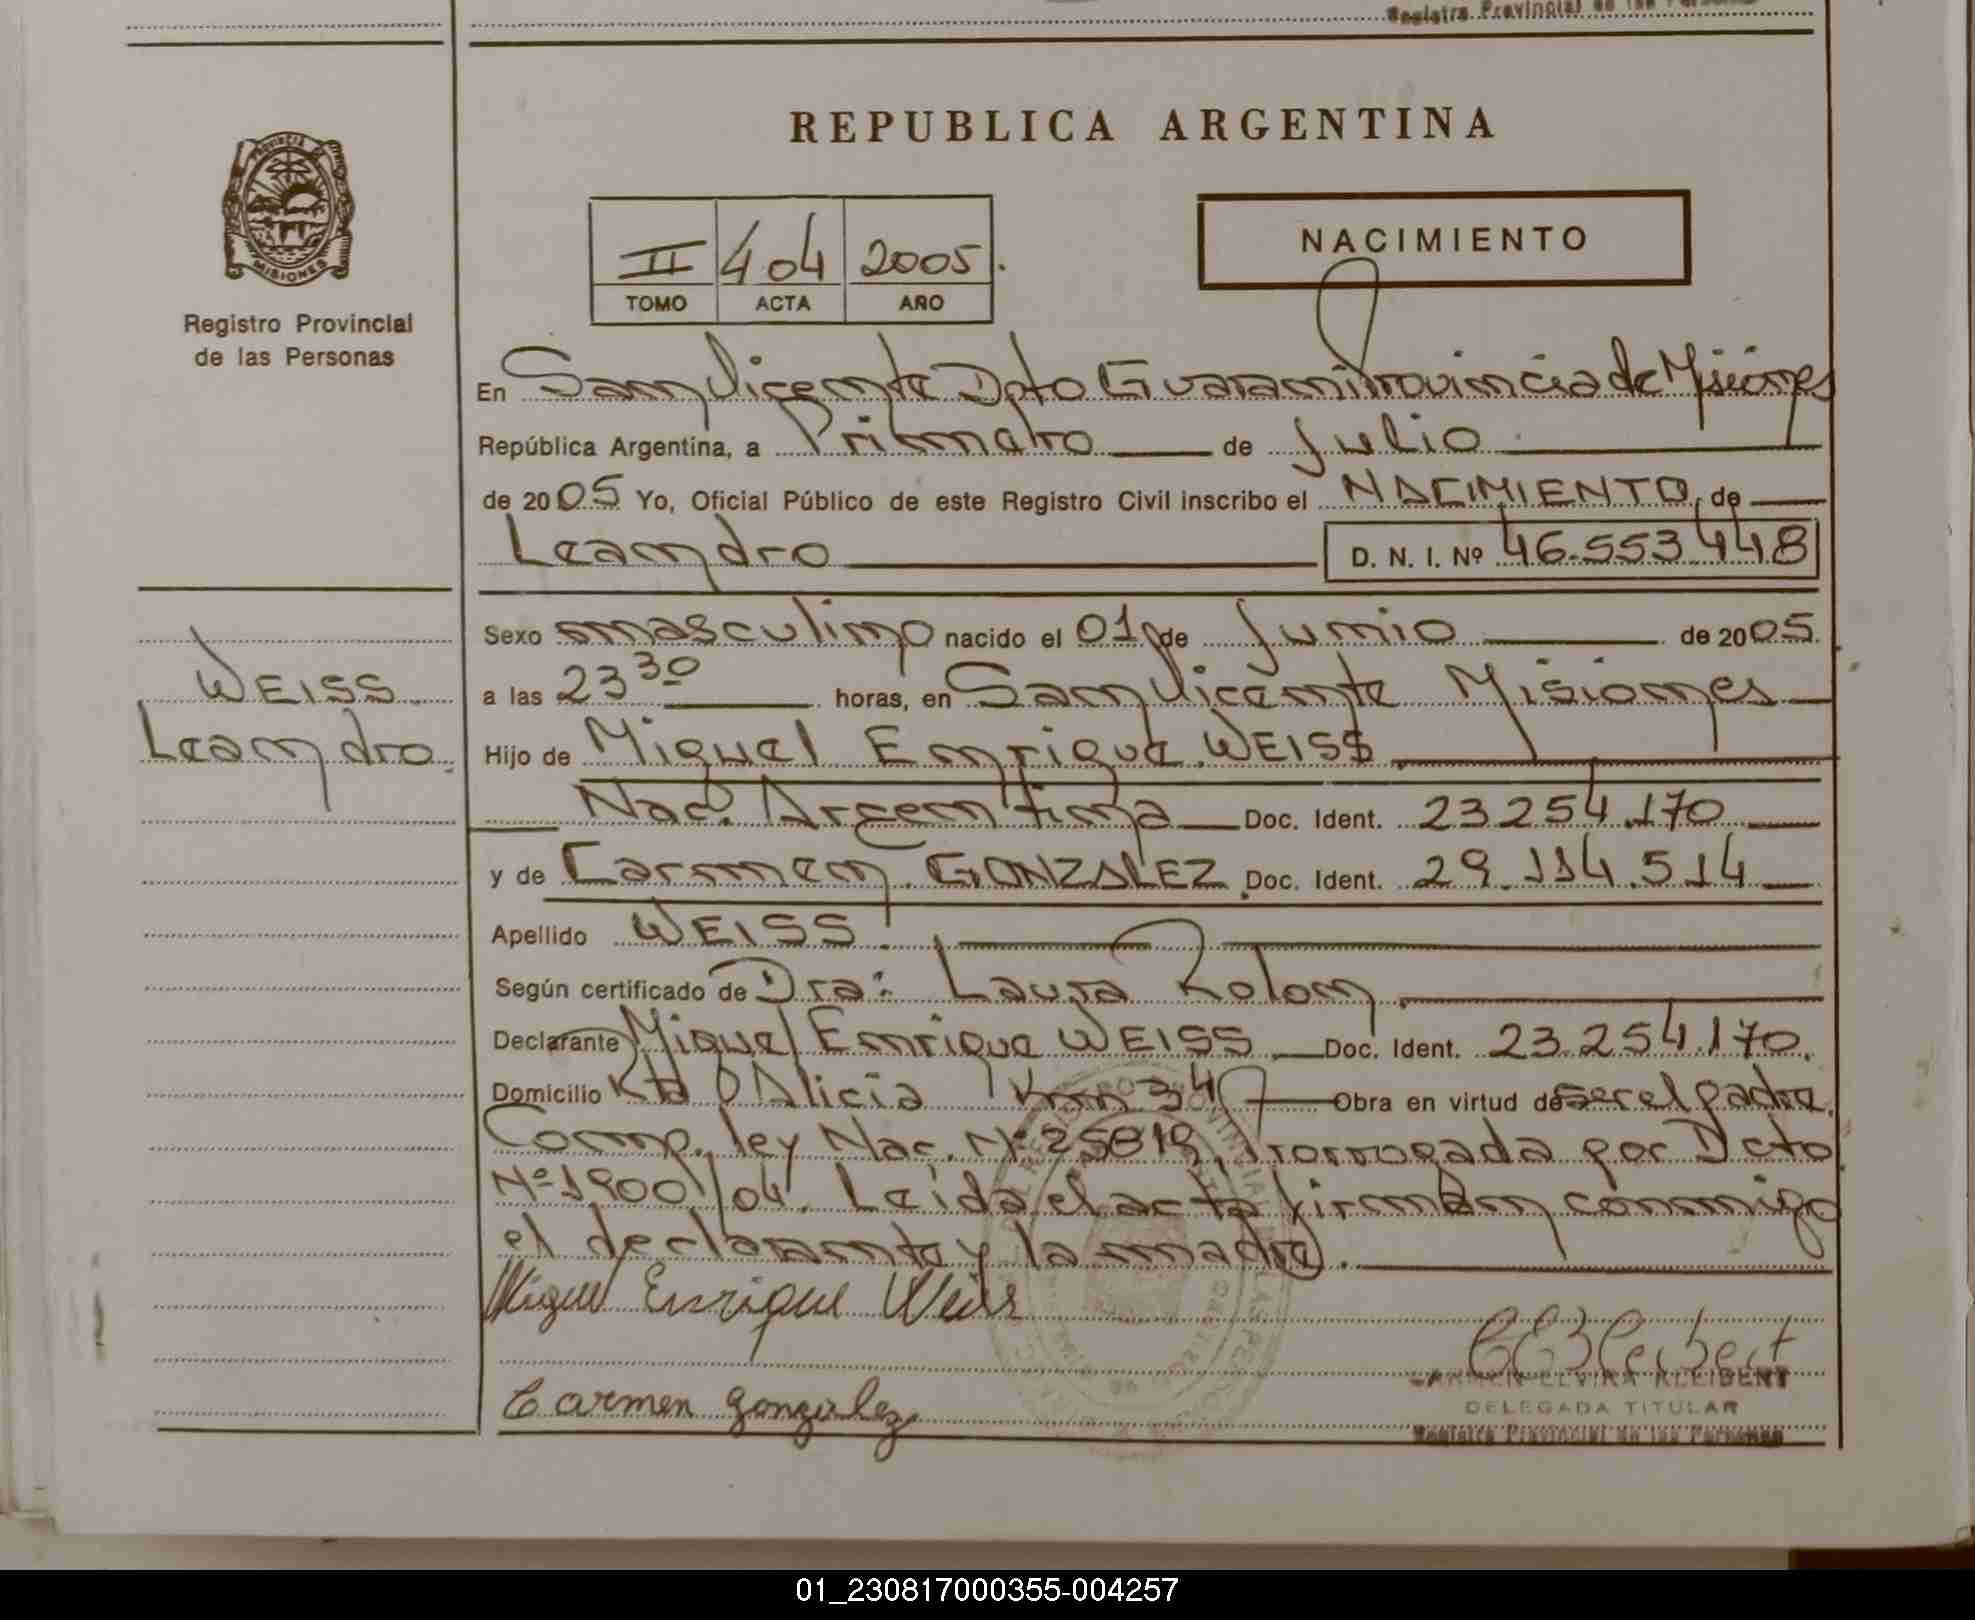 Registro Provincial de las Personas
REPUBLICA ARGENTINA
PROVINCIA DE
MISIONES
Registro Provincial
de las Personas
II 404 2005.
TOMO ACTA AÑO
NACIMIENTO
En San Vicente Dpto Guarani Provincia de Misiones
República Argentina, a Primero de Julio
de 2005 Yo, Oficial Público de este Registro Civil inscribo el NACIMIENTO, de
Leandro D. N. I. Nº 46.553.448
Sexo masculino nacido el 01 de Junio de 2005.
WEISS
Leandro.
a las 23 30 horas, en San Vicente Misiones
Hijo de Miguel Enrique WEISS
Nac. Argentina Doc. Ident. 23.254.170
y de Carmen GONZALEZ Doc. Ident. 29.114.514
Apellido WEISS
Según certificado de Dra: Laura Rolon
Declarante Miguel Enrique WEISS Doc. Ident. 23.254.170.
Domicilio Alicia Km 34 Obra en virtud de ser el padre.
Comp. ley Nac. Nº 25819 Prorrogada por Dcto
Nº 1900/04. Leída el acta firman conmigo
el declarante y la madre.
Miguel Enrique Weiss
Carmen gonzalez
CARMEN ELVIRA KLEIBERT
DELEGADA TITULAR
Registro Provincial de las Personas
01_230817000355-004257